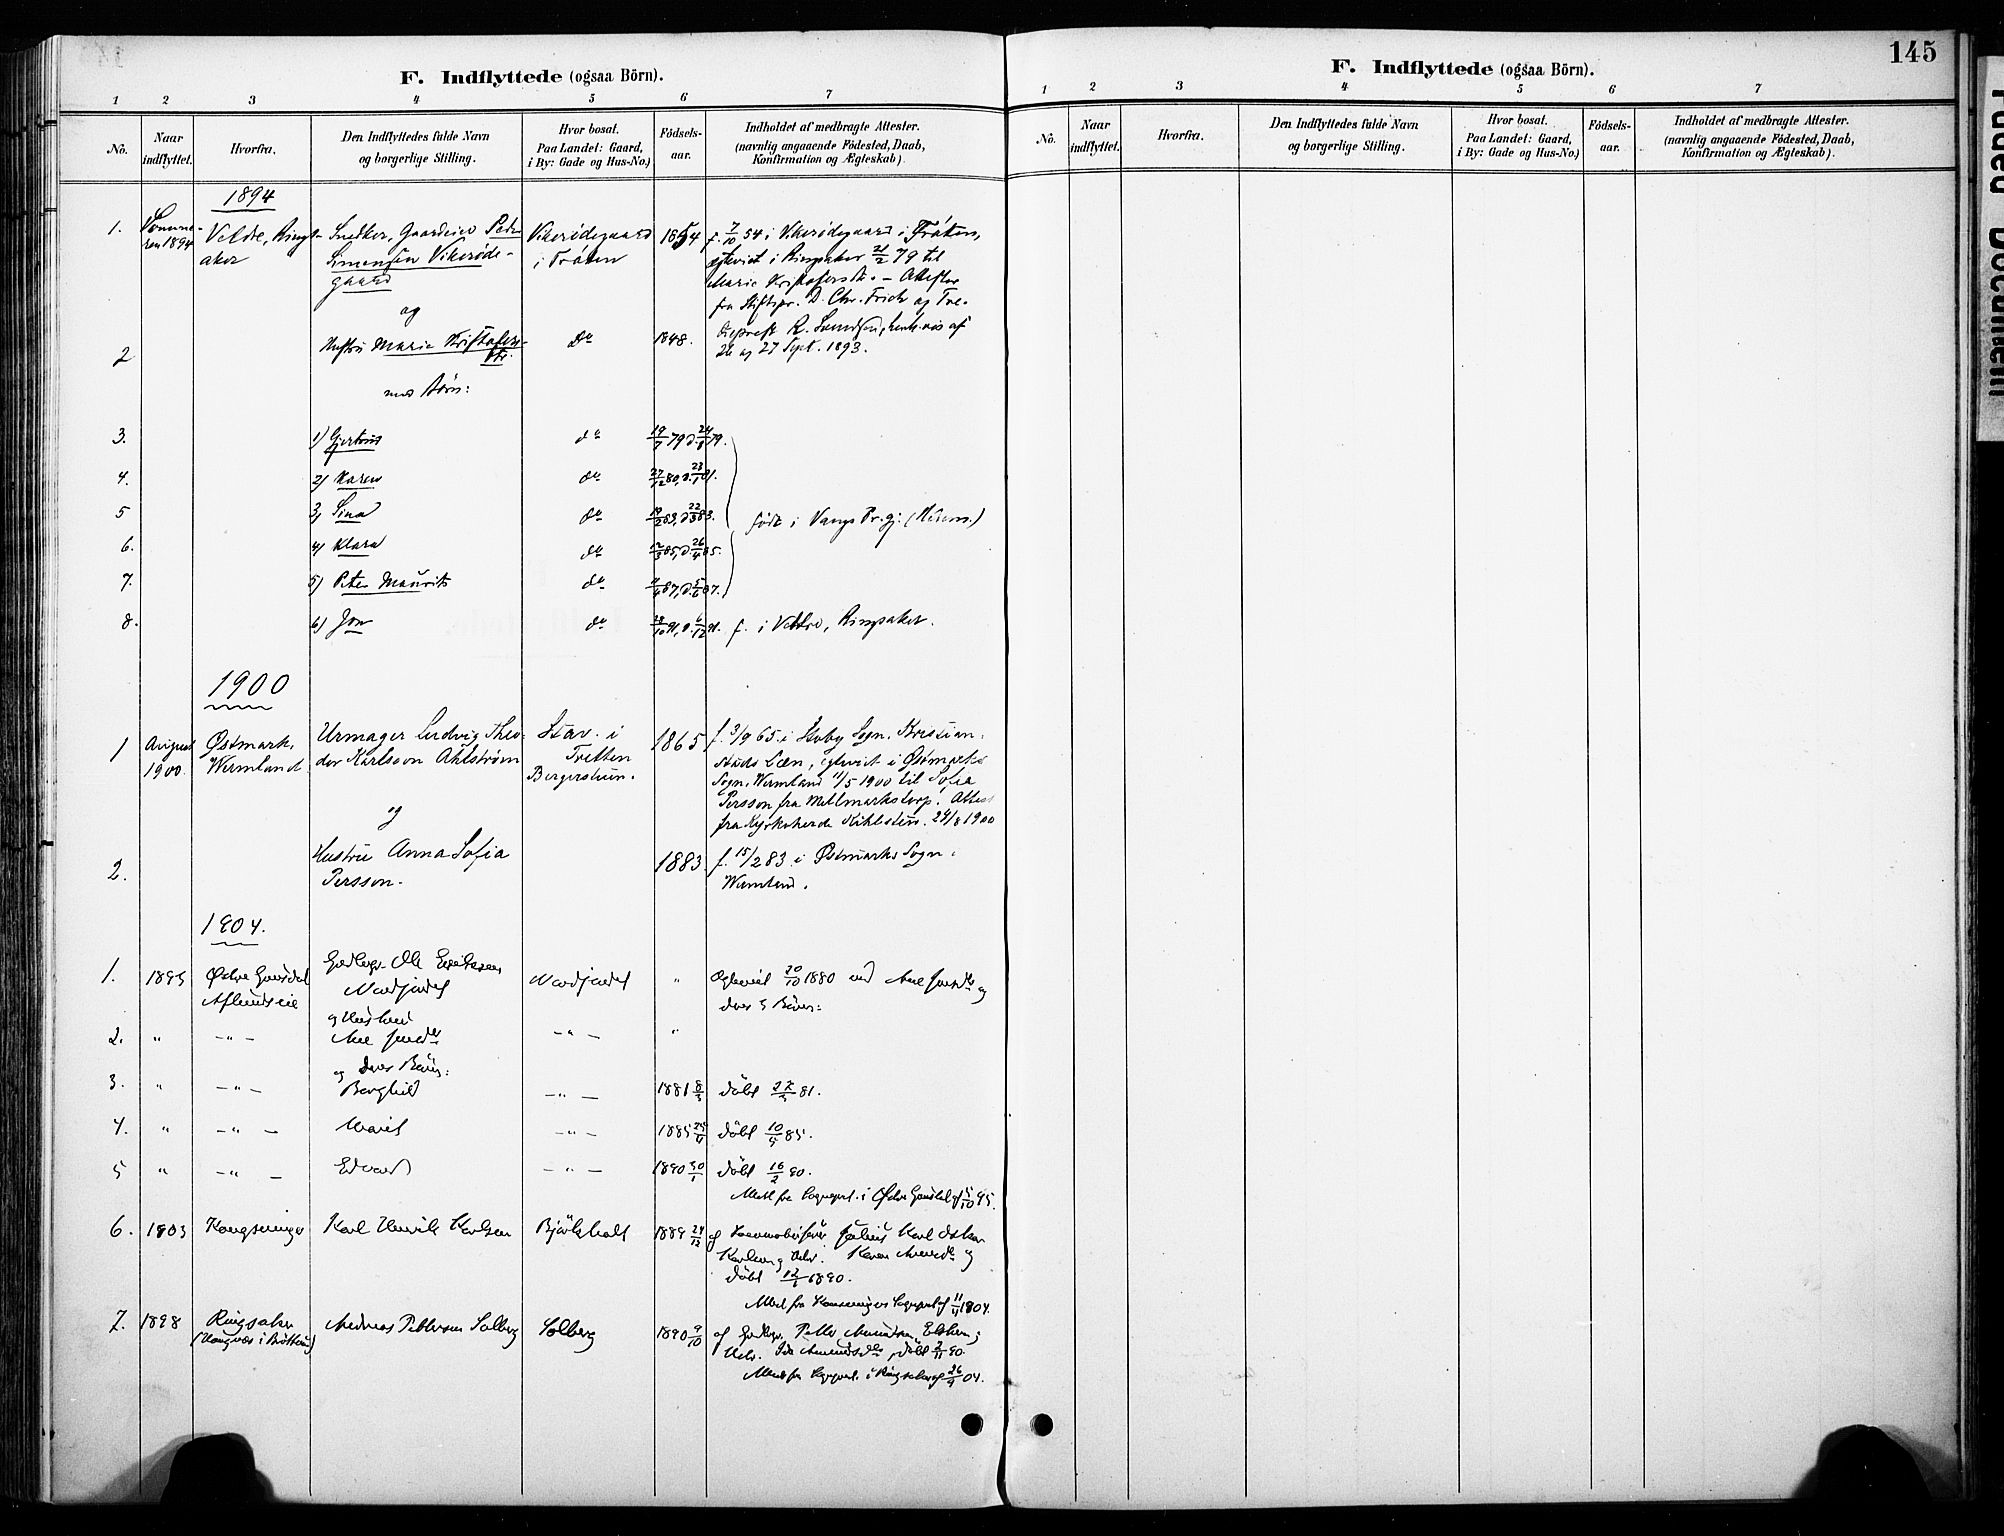 F. Indflyttede (ogsaa Börn).
1 2 3 4 5 6 7
No. Naar indflyttet. Hvorfra. Den Indflyttedes fulde Navn og borgerlige Stilling. Hvor bosat. Paa Landet: Gaard, i By: Gade og Hus-No.) Födsels-aar. Indholdet af medbragte Attester. (navnlig angaaende Födested, Daab, Konfirmation og Ægteskab).
1894
1. Sommeren 1894 Veldre, Ringsaker Snedker, Gaardeier Peder Simensen Vikerødegaard Vikerødegaard i Tróten 1854 f. 7/10 54 i Vikerødegaard i Tróten,
ægteviet i Ringsaker 21/2 79 til
Marie Kristofersdtr. - Attester
fra Stiftspr. D. Chr. Frich og
og
2 Hustru Marie Kristofersdtr. do 1848.
26 og 27 Sept. 1893.
med Börn:
3. 1) Gjertrud do 19/7 79 d. 24/8 79.
4. 2) Karen do 27/12 80, d. 23/1 81.
5 3) Sina do 19/2 83, d. 22/3 83. født i Vangs Pr.gj. (Hedem.)
6. 4) Klara do 12/3 85, d. 26/4 85.
7. 5) Peter Mauritz do 11/4 87, d. 5/6 87.
8. 6) Jon do 28/10 91, d. 6/12 91. f. i Veldre, Ringsaker.
1900
1 August 1900 Østmark, Wermland Urmager Ludvig Theodor Karlsson Ahlström Stav i Tretten Bergerstuen. 1865 f. 3/9 65 i Stoby Sogn, Kristian-
stads Læn, egteviet i Østmarks
Sogn, Wermland 11/5 1900 til Sofia
Persson fra Mellmarkstorp. Attest
fra Kyrkoherde Kihlsten. 24/8 1900
og
2. Hustru Anna Sofia Persson. 1883 f. 15/2 83 i Østmarks Sogn.
Wermland.
1904.
1. 1895 Østre Gausdal Aflundseie Ole Eriksen Nordjordet Nordjordet " Egteviet 20/10 1880 med Ane og
deres 5 Börn:
2. " -"- og Hustru Ane -"- "
og deres Börn:
3. " -"- Borghild -"- 1881 8/5 döbt 27/5 81.
4. " -"- Marit -"- 1885 döbt 10/5 85.
5 " -"- Edvard -"- 1890 30/1 döbt 16/2 90.
Meld fra Sogneprest. i Østre Gausdal af 5/10 95.
6. 1903 Kongsvinger Karl Henrik Karlsen Björkholt 1889 24/12 af Julius Karl Oskar
Karlsen og Karen og
döbt 12/1 1890.
Meld fra Kongsvinger Sogneprest af 11/11 1904.
7. 1898 Ringsaker Andreas Pettersen Solberg Solberg 1890 9/10 af Petter og
Ida Amundsdtr, döbt 2/11 90.
Meld fra Sogneprest. i Ringsaker af 26/9 04.
145
F. Indflyttede (ogsaa Börn).
1 2 3 4 5 6 7
No. Naar indflyttet. Hvorfra. Den Indflyttedes fulde Navn og borgerlige Stilling. Hvor bosat. Paa Landet: Gaard, i By: Gade og Hus-No.) Födsels-aar. Indholdet af medbragte Attester. (navnlig angaaende Födested, Daab, Konfirmation og Ægteskab).
Faded Document